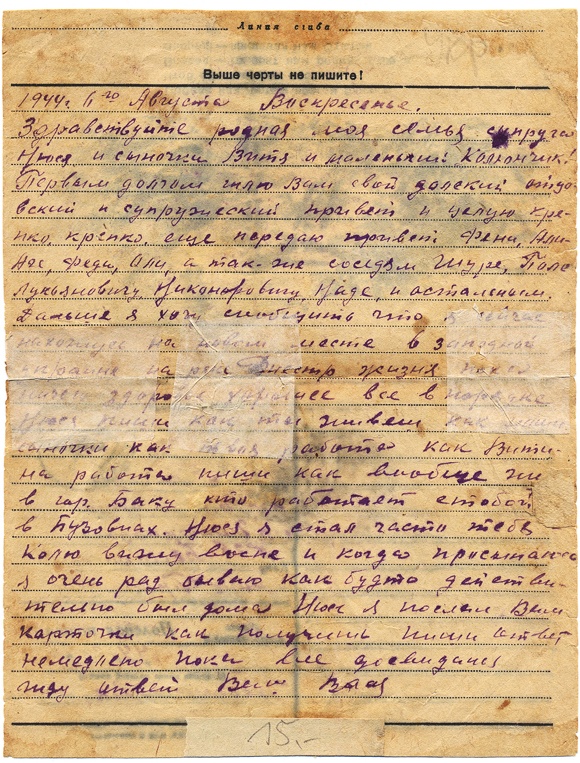 Линия сгиба
Выше черты не пишите!
1944г. 6го Августа Воскресенье.
Здравствуйте родная моя семья супруга
Нюся и сыночки Витя и маленький Колюнчик!
Первым долгом шлю Вам свой
и супружеский привет и целую кре-
пко, крепко, еще передаю привет Фени,
Феди, Оли, а так-же соседям Шуре,
Лукьяновичу, Никоноровичу, Наде, и остальным.
Дальше я хочу сообщить что я сейчас
нахожусь на новом месте в западной
украине на реке Днестр жизня пока
ничего здоровье хорошее все в порядке
Нюся пиши как ты живеш как наши
сыночки как твоя работа как Вити-
на работа пиши как вообще жи
в гор. Баку кто работает стобой
в Бузовнах. Нюся я стал часто тебя
Колю вижу восне и когда просыпаюсь
я очень рад бываю как будто действи-
тельно был дома Нюся я послал Вам
карточки как получишь пиши ответ
немедлено пока все досвидания
жду ответ Ваш
15.-